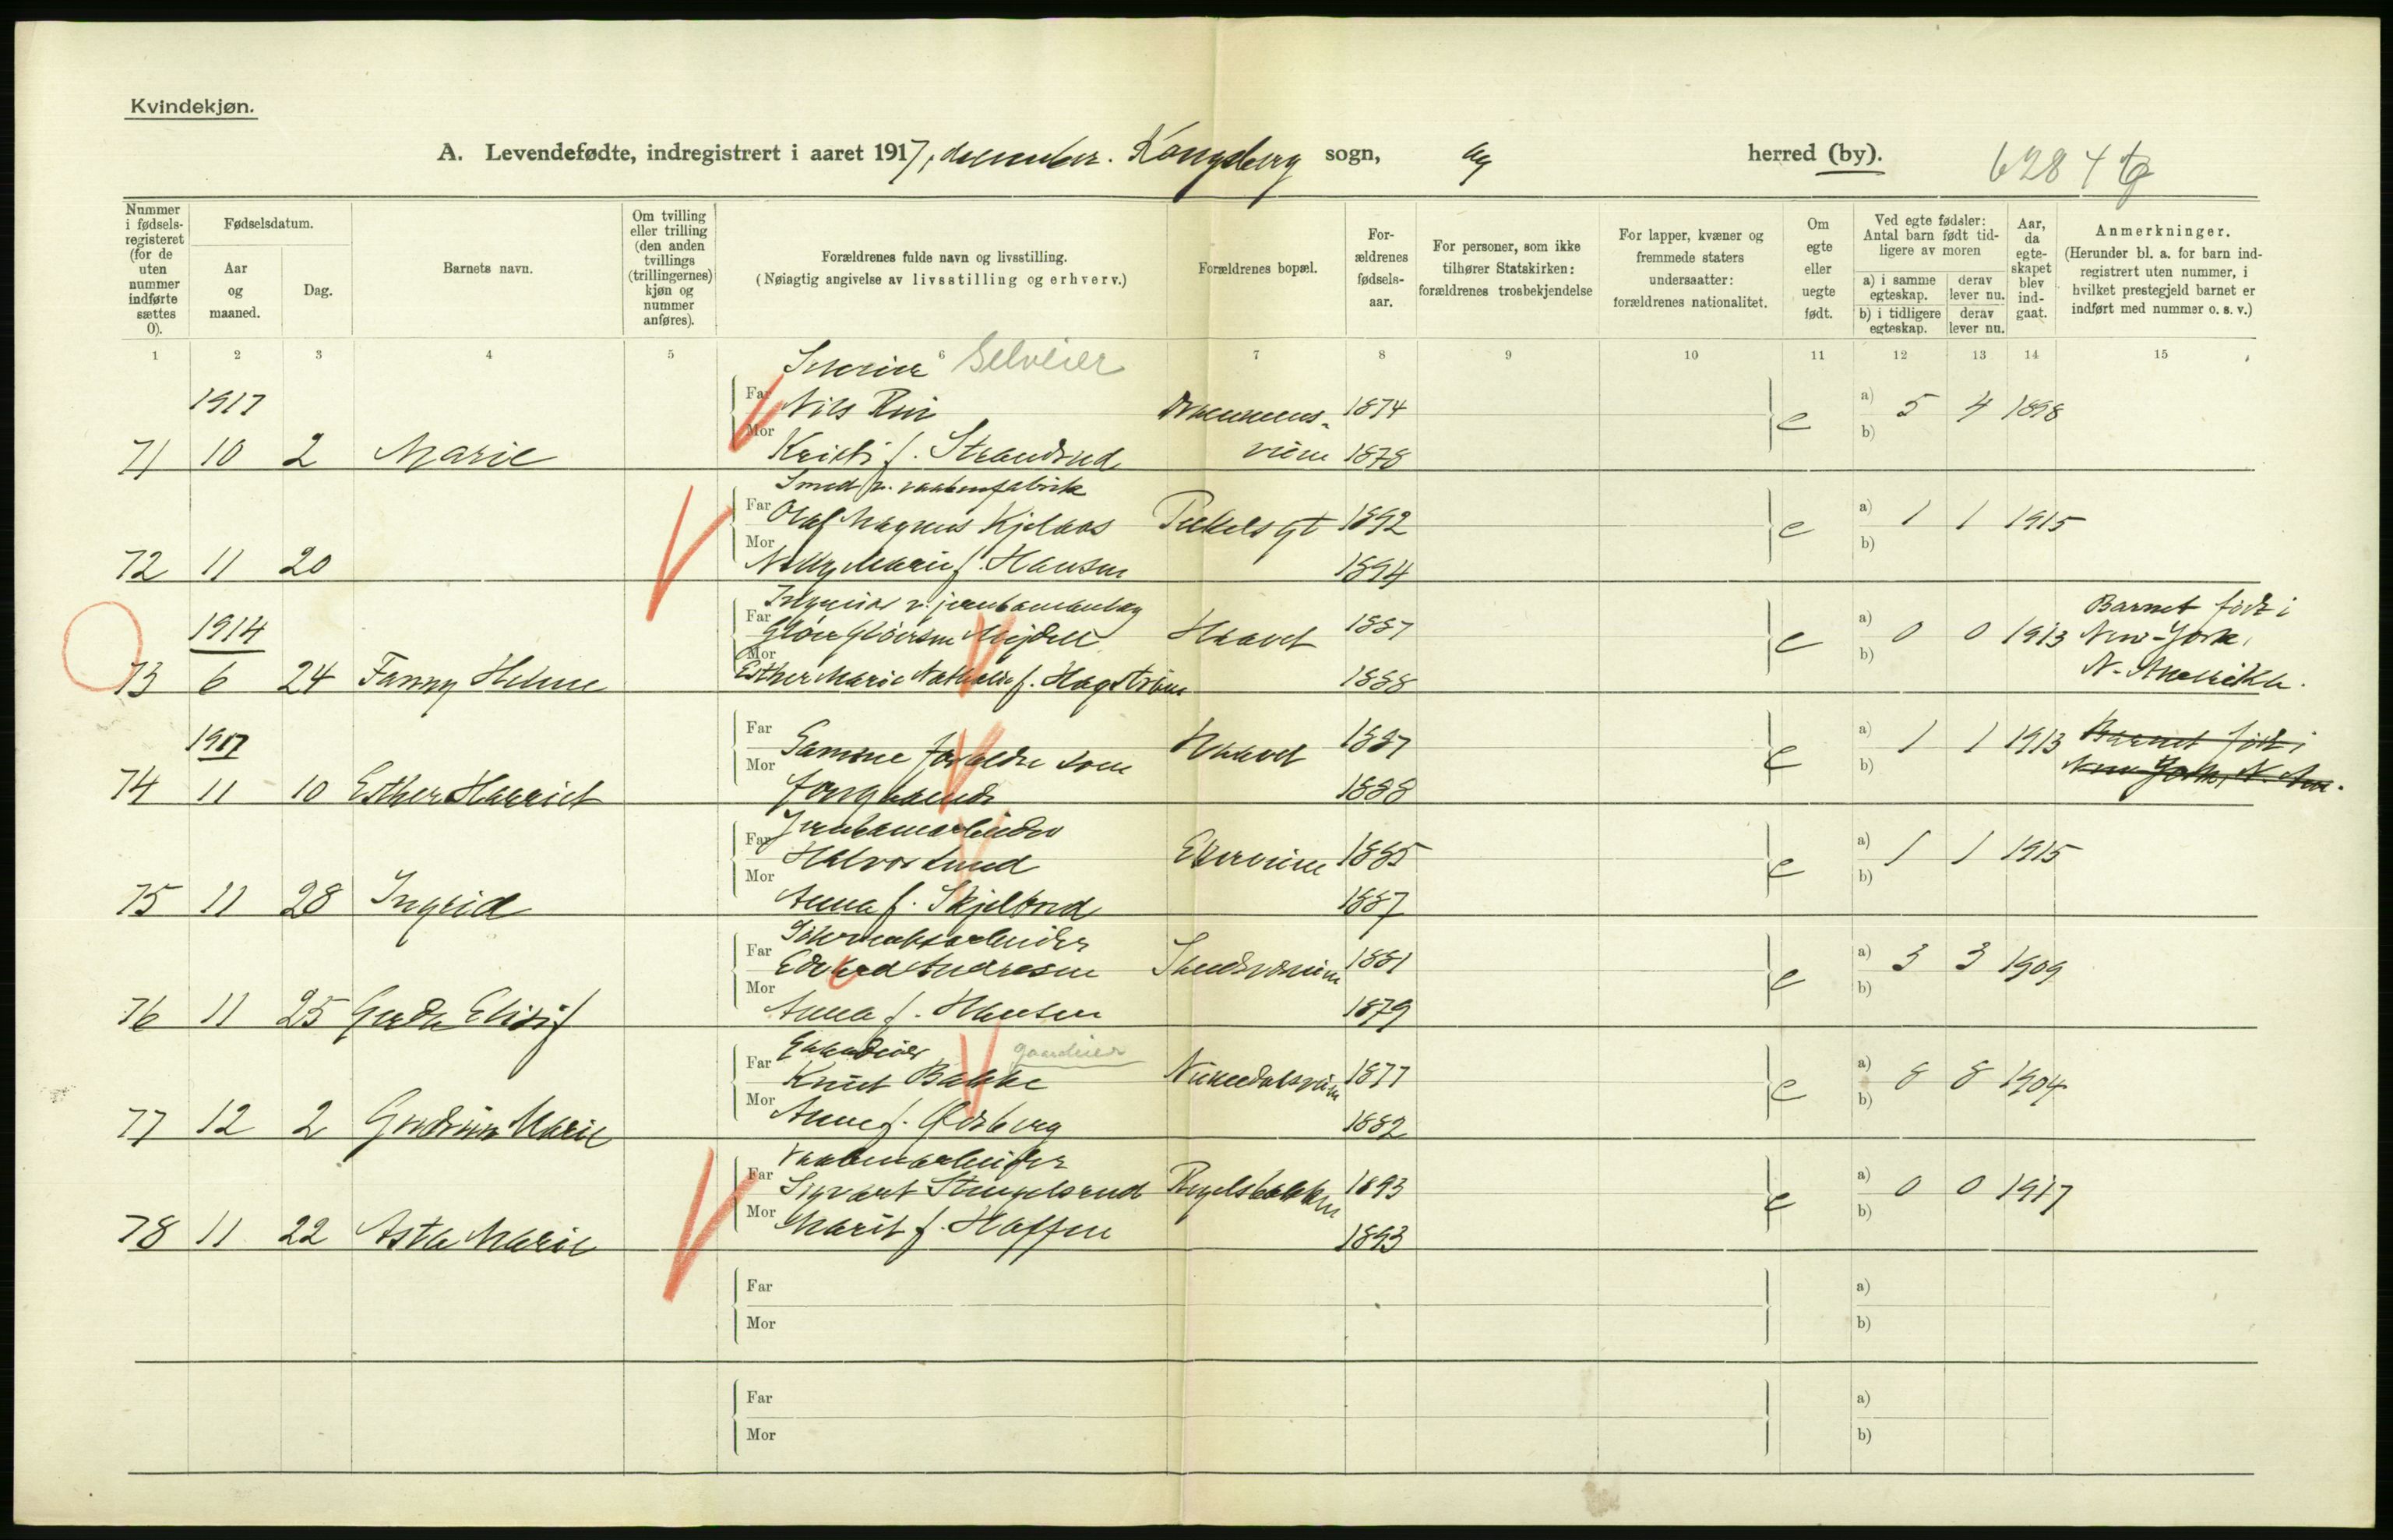 Kvindekjøn.
A. Levendefødte, indregistrert i aaret 1917, december. Kongsberg sogn, og herred (by).
6284
Nummer i fødsels-registeret (for de uten nummer indførte sættes 0).
Fødselsdatum.
Aar og maaned.
Dag.
Barnets navn.
Om tvilling eller trilling (den anden tvillings (trillingernes) kjøn og nummer anføres).
Forældrenes fulde navn og livsstilling.
(Nøiagtig angivelse av livsstilling og erhverv.)
Forældrenes bopæl.
For-ældrenes fødsels-aar.
For personer, som ikke tilhører Statskirken: forældrenes trosbekjendelse
For lapper, kvæner og fremmede staters undersaatter: forældrenes nationalitet.
Om egte eller uegte født.
Ved egte fødsler: Antal barn født tid-ligere av moren
a) i samme egteskap.
derav lever nu.
b) i tidligere egteskap.
derav lever nu.
Aar, da egte-skapet blev ind-gaat.
Anmerkninger.
(Herunder bl. a. for barn ind-registrert uten nummer, i hvilket prestegjeld barnet er indført med nummer o. s. v.)
1 2 3 4 5 6 7 8 9 10 11 12 13 14 15
Selveier
1917
Far Nils 1874 a) 5 4 1898
71 10 2 Marie Mor Kristi f. Strandrud 1878 e b)
Smed v. vaabenfabrik
Far Olaf Magnus Kjelaas 1892 a) 1 1 1915
72 11 20 Mor Nelly Marie f. Hansen 1894 e b)
1914
Ingeniør v. jernbaneanlæg
Far Gløer Gløersen Mejdell Haavet 1887 a) 0 0 1913 Barnet født i New-York, N. Amerika.
73 6 24 Fanny Helene Mor Esther Marie Nathalie f. Hagström 1888 e b)
1917
Far Samme forældre som Haavet 1887 a) 1 1 1913 Barnet født i New York, N. Am.
74 11 10 Esther Harriet Mor foregaaende 1888 e b)
Jernbanearbeider
Far Halvor Lund 1885 a) 1 1 1915
75 11 28 Ingrid Mor Anna f. Skjelbred 1887 e b)
Far Edvard Andresen 1881 a) 3 3 1909
76 11 25 Gerda Elisif Mor Anna f. Hansen 1879 e b)
Gaardeier gaardeier
Far Knut Bakke Numedalsveien 1877 a) 8 8 1904
77 12 2 Gudrun Marie Mor Anne f. 1882 e b)
Vaabenarbeider
Far Sigvart Stengelsrud 1893 a) 0 0 1917
78 11 22 Asta Marie Mor Marit f. Haffen 1893 e b)
Far a)
Mor b)
Far a)
Mor b)